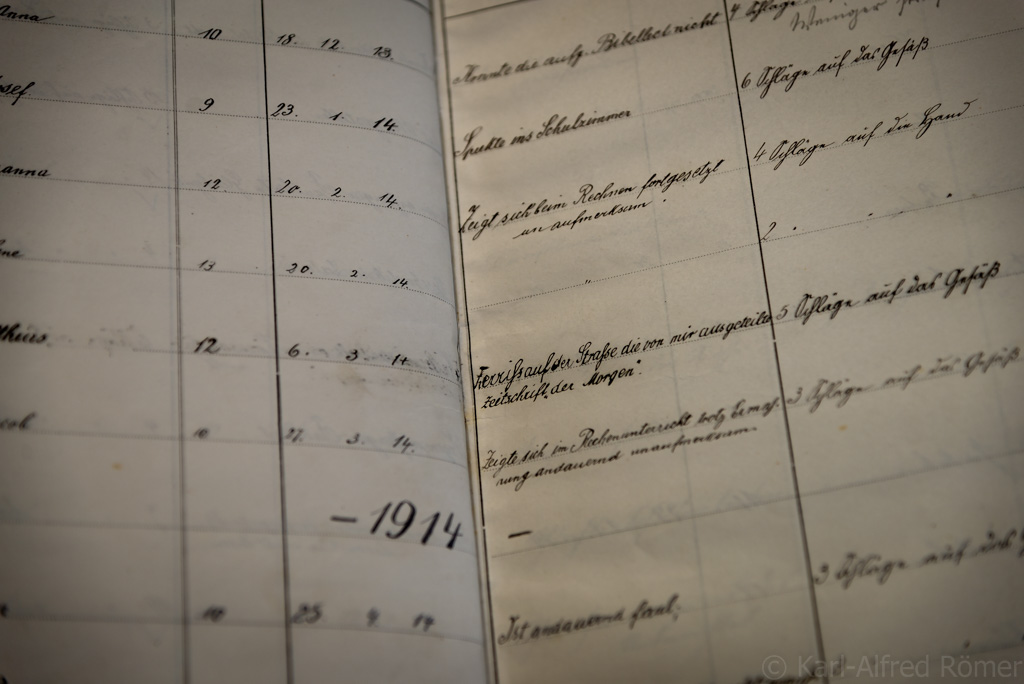 Anna 10 18. 12 13. Konnte die aufg. Bibellect nicht 4 Schläge
Weniger
9 23. 1. 14. Spukte ins Schulzimmer 6 Schläge auf das Gesäß
12. 20. 2. 14. Zeigt sich beim Rechnen fortgesetzt 4 Schläge auf die Hand
un aufmerksam
13 20. 2. 14. " 2 " " "
12 6. 3. 14 Zerriss auf der Straße die von mir ausgeteilte 5 Schläge auf das Gesäß
Zeitschrift „der Morgen".
10 27. 3. 14. Zeigte sich im Rechenunterricht trotz Ermah- 3 Schläge auf das Gesäß
nung andauernd unaufmerksam
– 1914 –
10 25 4 14 Ist andauernd faul; 3 Schläge auf das
© Karl-Alfred Römer